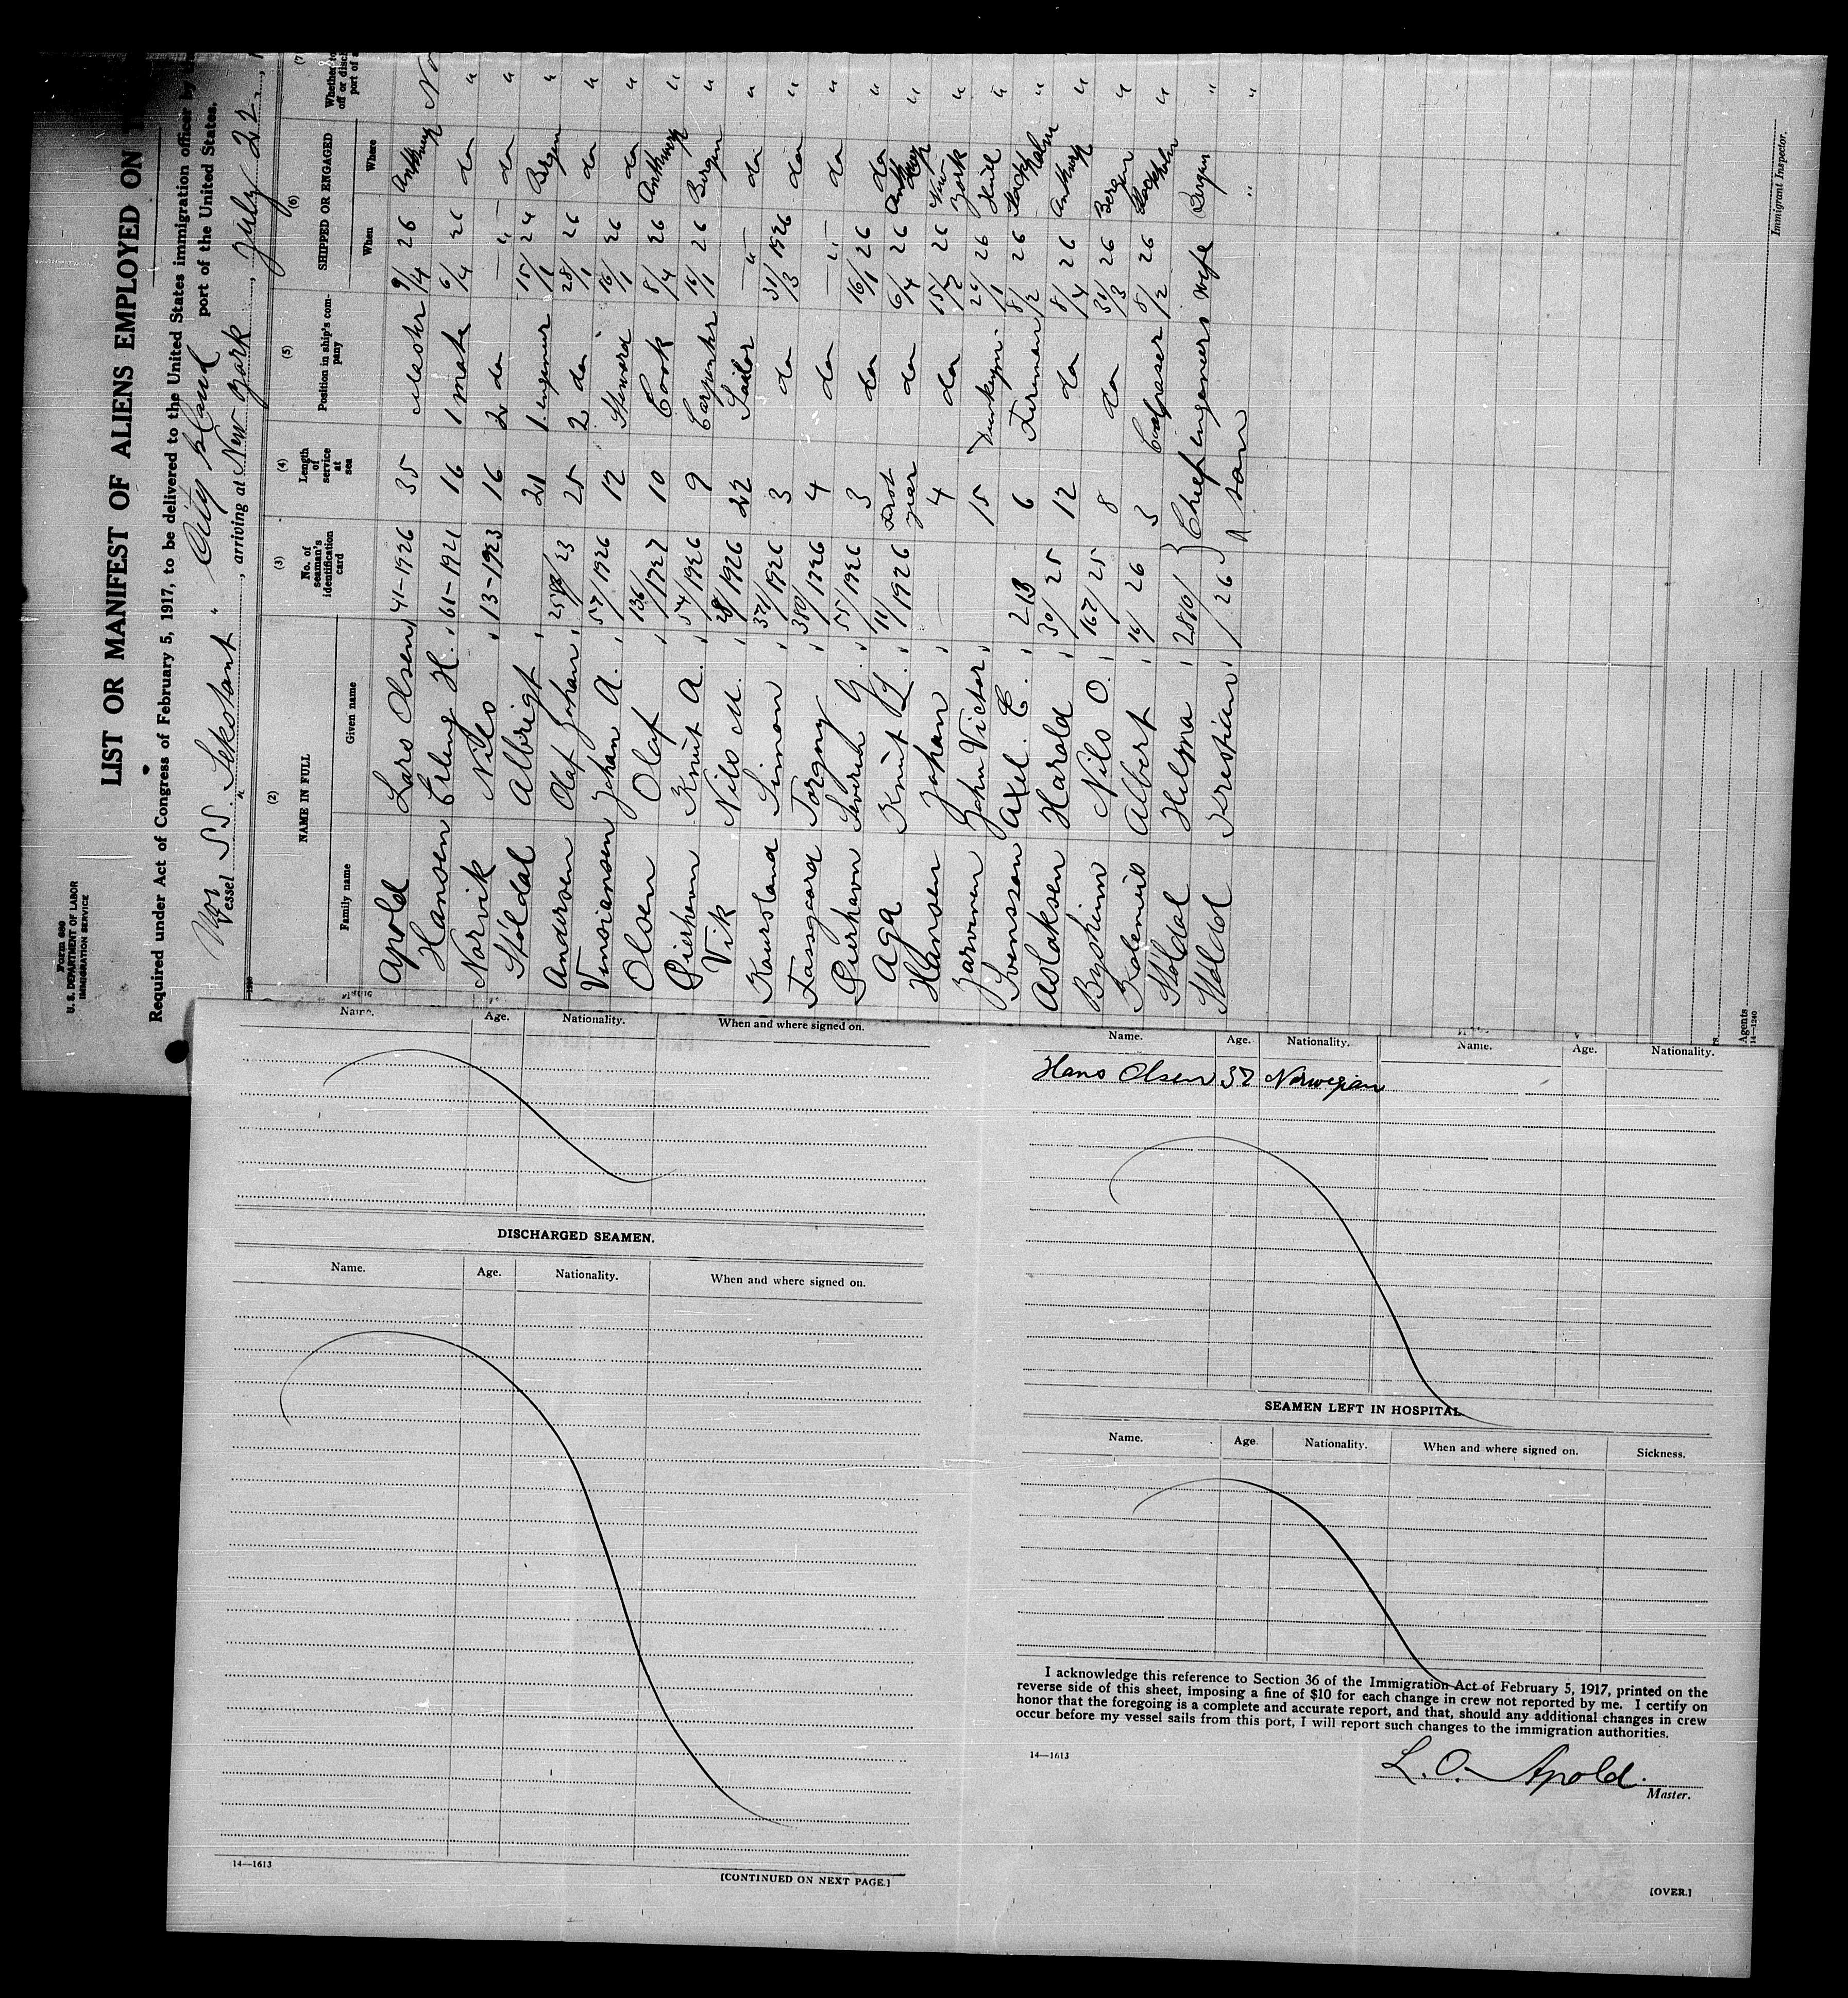 Form 689
U. S. DEPARTMENT OF LABOR
IMMIGRATION SERVICE
LIST OR MANIFEST OF ALIENS EMPLOYED ON
Required under Act of Congress of February 5, 1917, to be delivered to the United States immigration officer by
port of the United States.
Nor
Vessel S.S. " City Island
" , arriving at New York , July 22 ,
(2) (3) (4) (5) (6) (7)
NAME IN FULL No. of seaman's identification card Length of service at sea Position in ship's company SHIPPED OR ENGAGED
Family name Given name When Where
Apold Lars Olsen 41-1926 35 Master 9/4 26 Antwerp
Hansen Erling H. 61-1921 16 1 mate 6/4 26 do "
Norvik Nils 13-1923 16 2 do — " — do "
Støldal Albrigt 21 1. engineer 15/1 24 Bergen "
Andersen Olaf Johan 23 25 2 do 28/1 26 do "
Johan A. 57/1926 12 Steward 16/1 26 do "
Olsen Olaf 136/1927 10 Cook 8/4 26 Antwerp "
Gierhavn Knut A. 54/1926 9 Carpenter 16/1 26 Bergen "
Vik Nils M. 28/1926 22 Sailor — " — do "
Kaursland Simon 371/1926 3 do 31/3 1926 do "
Fassgaard Torgny 380/1926 4 do — " — do "
Gierhavn Severin G. 55/1926 3 do 16/1 26 do "
Aga Knut 11/1926 First year do 6/4 26 Antwerp "
Hansen Johan 4 do 15/7 26 New York "
Jarvinen John Victor 15 Dunkeym. 26/1 26 "
Svensson Axel E. 213 6 Fireman 8/2 26 Stockholm "
Aslaksen Harald 30/25 12 do 8/4 26 Antwerp "
Bysheim Nils O. 167/25 8 do 31/3 26 Bergen "
Albert 16/26 3 Coalpasser 8/2 26 Stockholm "
Støldal Helma 2810/26 Chief engeneers wife Bergen "
Støldal Kristian " son " "
Immigrant Inspector.
Agents
14—1240
Name. Age. Nationality. When and where signed on.
DISCHARGED SEAMEN.
Name. Age. Nationality. When and where signed on.
14—1613
[CONTINUED ON NEXT PAGE.]
Name. Age. Nationality. Name. Age. Nationality.
Hans Olsen 37 Norwegian
SEAMEN LEFT IN HOSPITAL.
Name. Age. Nationality. When and where signed on. Sickness.
I acknowledge this reference to Section 36 of the Immigration Act of February 5, 1917, printed on the
reverse side of this sheet, imposing a fine of $10 for each change in crew not reported by me. I certify on
honor that the foregoing is a complete and accurate report, and that, should any additional changes in crew
occur before my vessel sails from this port, I will report such changes to the immigration authorities.
14—1613
L. O. Apold.
Master.
[OVER.]